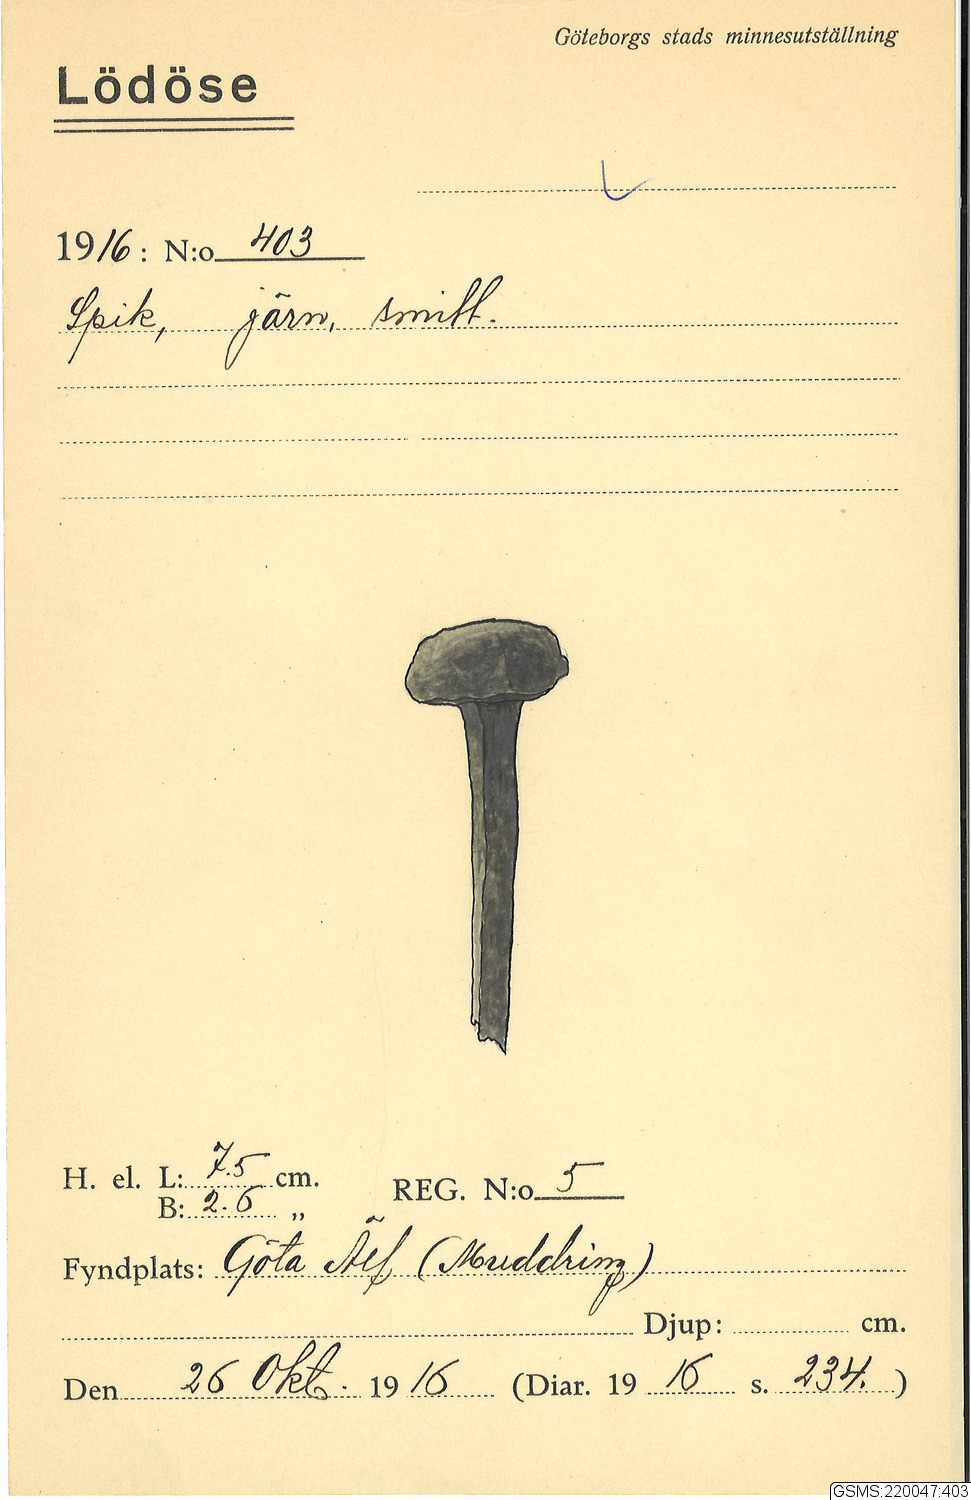 Göteborgs stads minnesutställning
Lödöse
1916: N:o 403
Spik, järn, smitt.
H. el. L: 7.5 cm.
B: 2.6 „
REG. N:o 5
Fyndplats: Göta Älf (Muddring)
Djup: cm.
Den 26 Okt. 1916 (Diar. 1916 s. 234.)
GSMS:220047:403